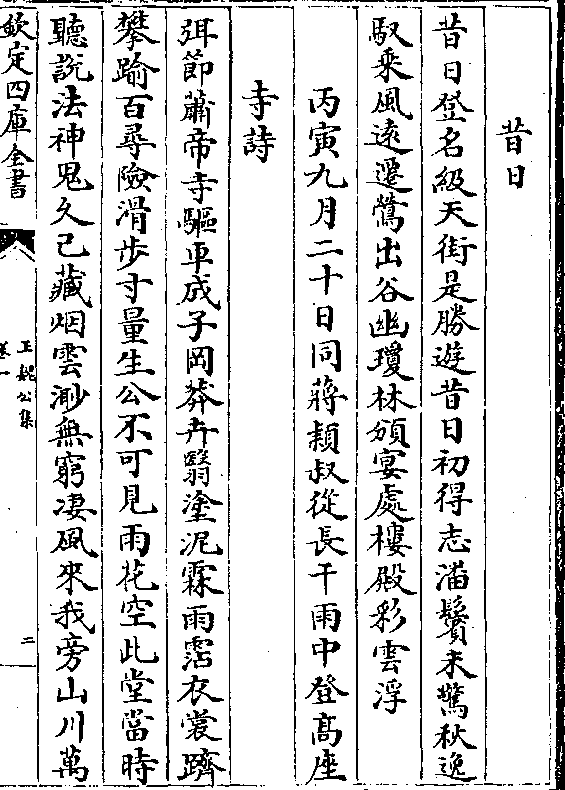 昔日
昔日登名級天街是勝遊昔日初得志滿鬢未驚秋逸
馭乘風遠遷鶯出谷幽瓊林頒宴處樓殿彩雲浮
丙寅九月二十日同蔣穎叔從長干雨中登高座
寺詩
弭節蕭帝寺驅車成子岡莽卉翳塗泥霖雨霑衣裳躋
攀踰百尋險滑步寸量生公不可見雨花空此堂當時
聽說法神鬼久已藏烟雲渺無窮凄風來我旁山川萬
欽定四庫全書
王魏公集
卷一
二